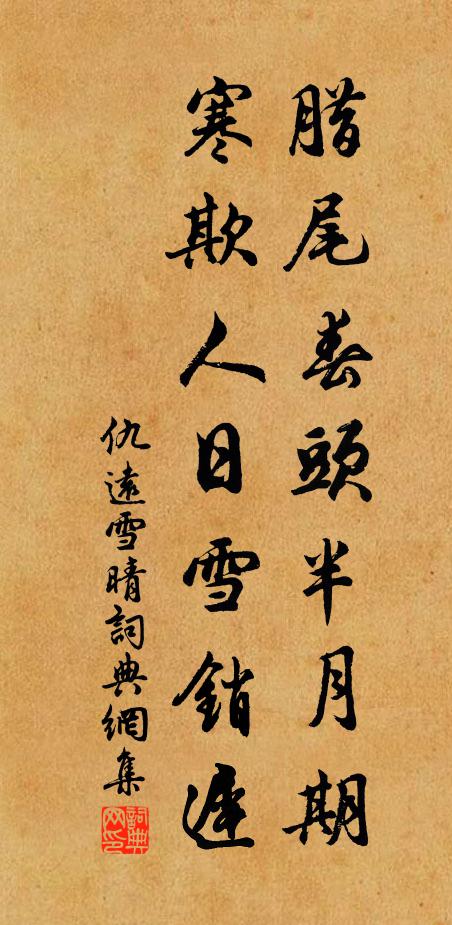 腊尾春頭半月期
寒欺人日雪銷遲
仇遠雪晴詞典網集
詞典网印